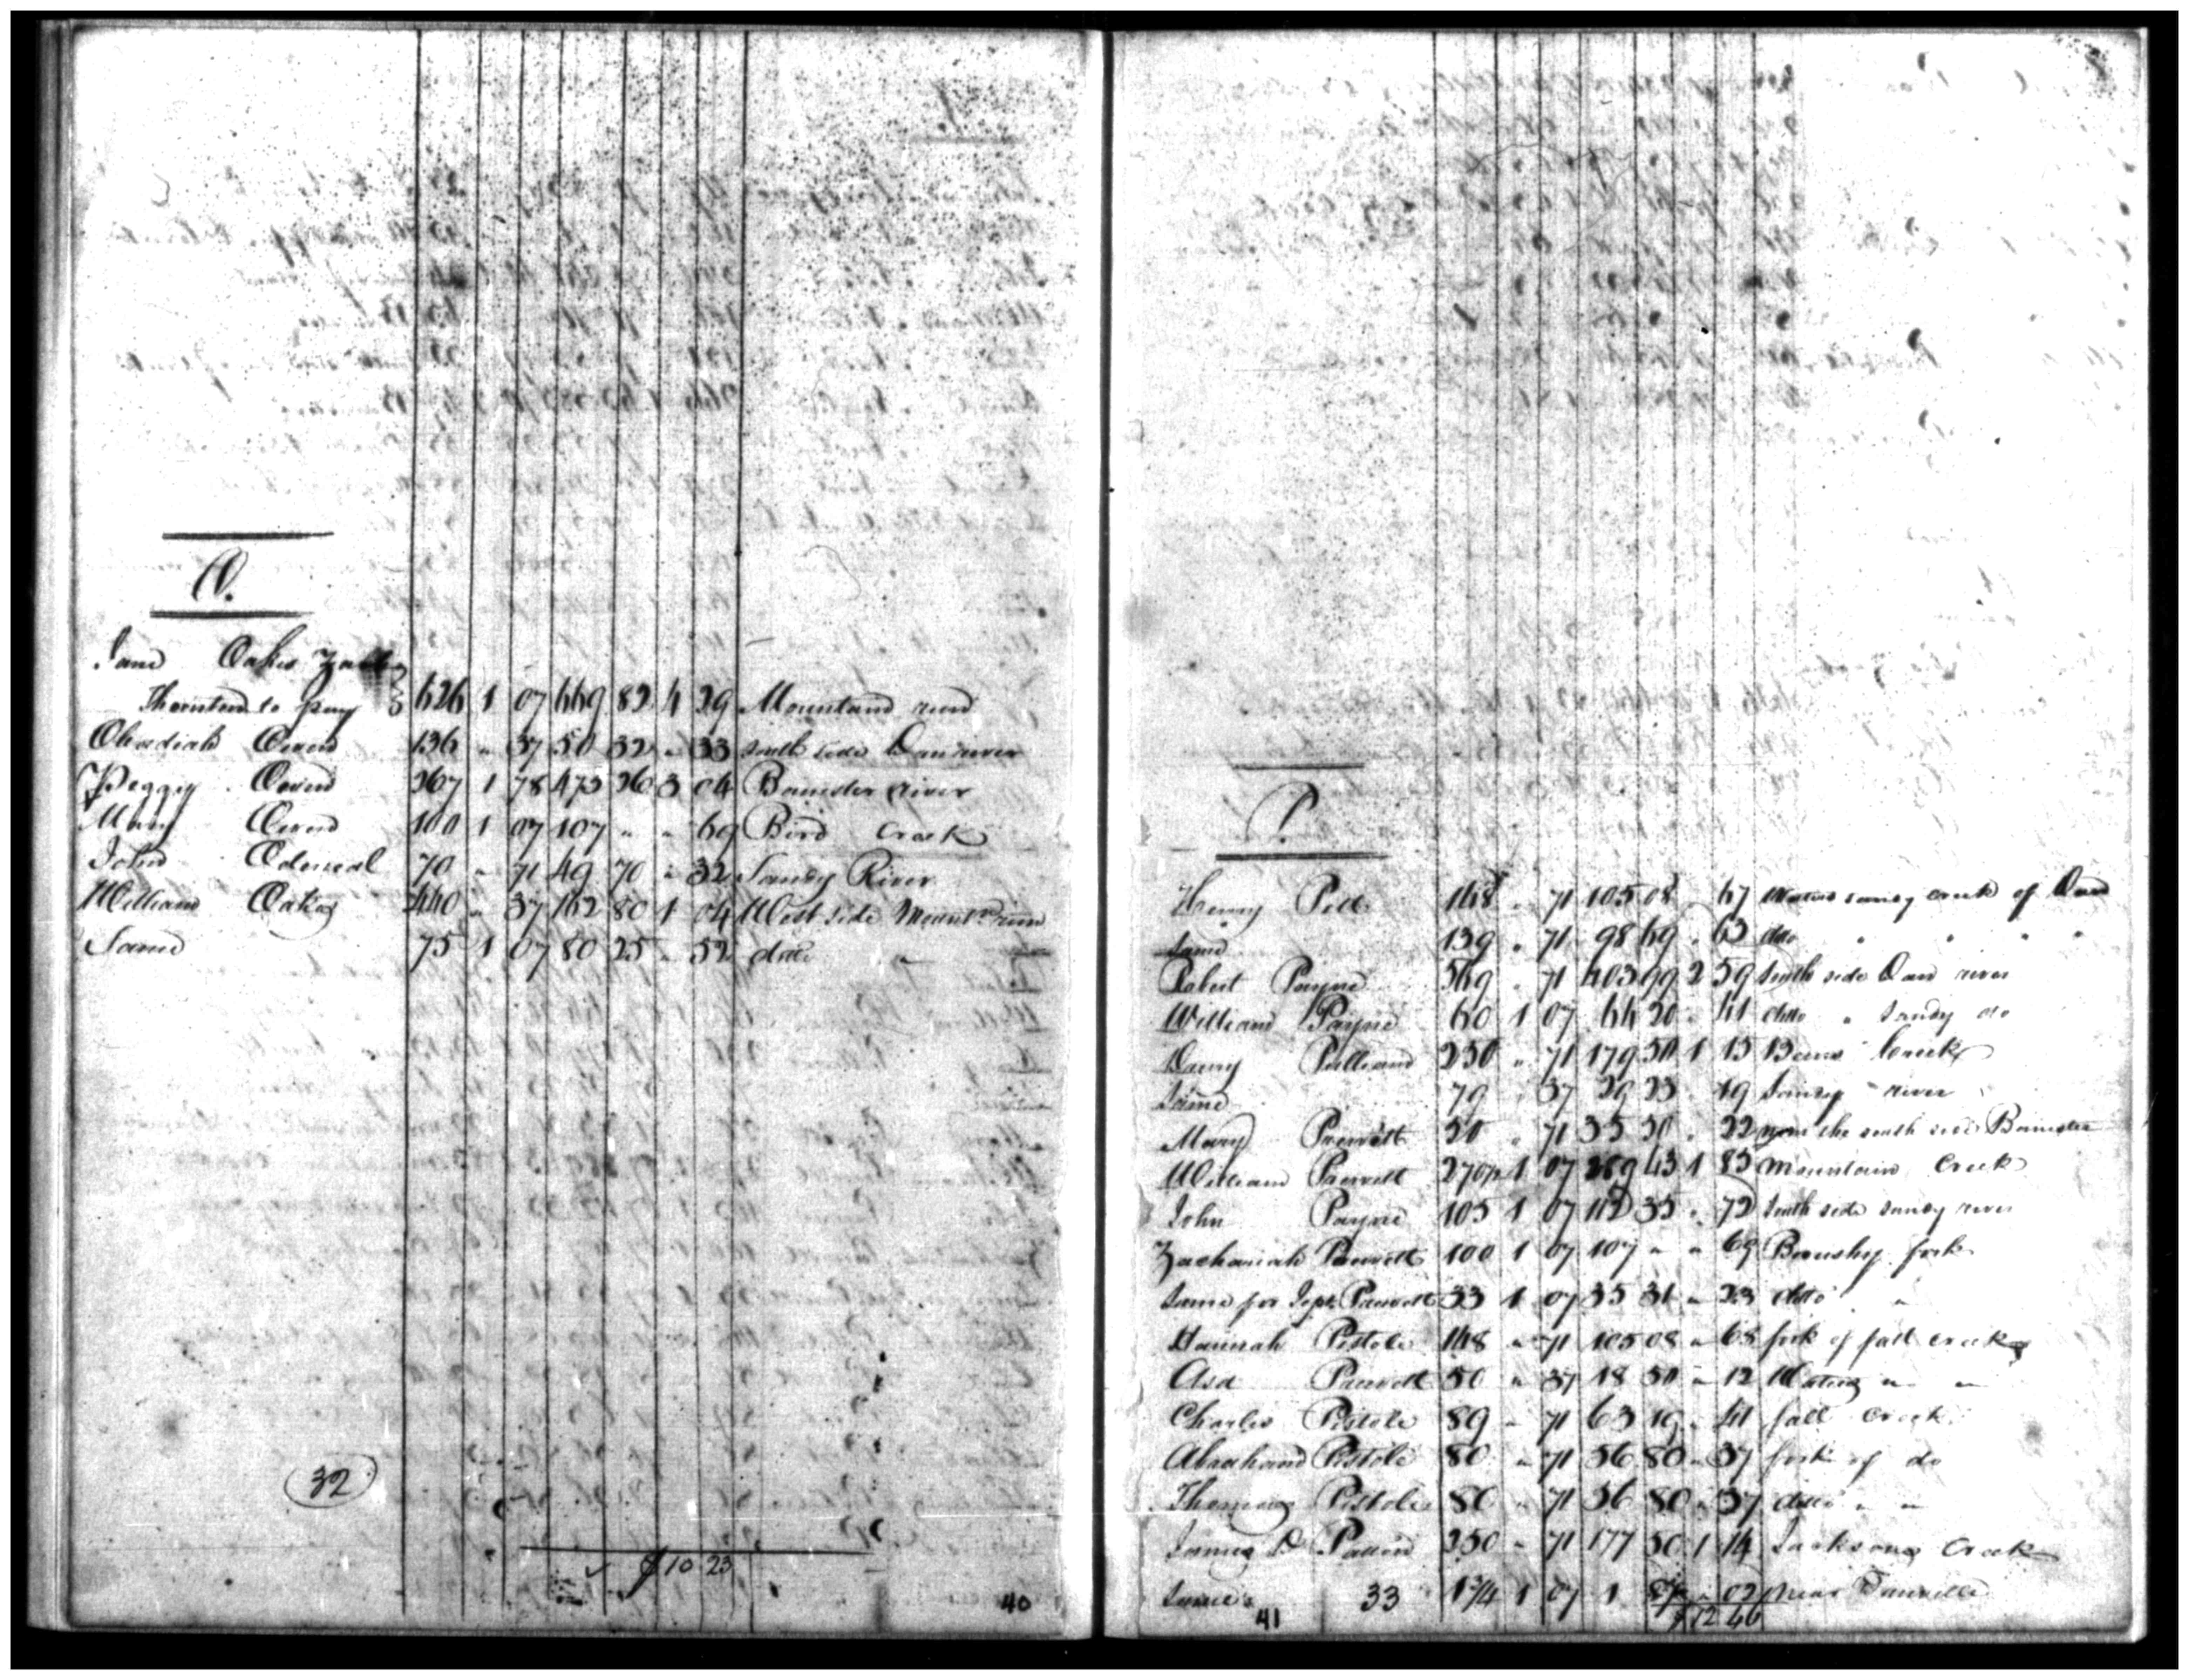 O.
Jane Oakes
Thornton to pay 626 1 07 669 82 4 29 Mountain run
Obadiah Owen 136 " 37 50 32 " 33 South side Dan river
Peggy Owen 267 1 78 475 26 3 04 Banister river
Mary Owen 100 1 07 107 " " 69 Bird Creek
John Odeneal 70 " 71 49 70 " 32 Sandy River
William Oakes 440 " 37 162 80 1 04 West side Mount run
Same 75 1 07 80 25 " 52 ditto "
32
$10 23
40
P.
Henry 148 " 71 105 08 " 67 Waters sandy creek of Dan
Same 139 " 71 98 69 " 63 ditto " " " "
Robert Payne 569 " 71 403 99 2 59 South side Dan river
William Payne 60 1 07 64 20 " 41 ditto " Sandy do
250 " 71 179 50 1 15 Creek
Same 79 " 37 29 23 " 19 Sandy river
Mary Prewett 50 " 71 35 50 " 22 the south side Banister
William Prewett 270½ 1 07 289 43 1 85 Mountain Creek
John Payne 105 1 07 112 35 " 72 South side sandy river
Zachariah Prewett 100 1 07 107 " " 69 Brushy fork
Same for Prewett 33 1 07 35 31 " 23 ditto "
Hannah Pistole 148 " 71 105 08 " 68 fork of fall creek
Asa Prewett 50 " 37 18 50 " 12 Waters " "
Charles Pistole 89 " 71 63 19 " 41 fall Creek
Abraham Pistole 80 " 71 56 80 " 37 fork of do
Thomas Pistole 80 " 71 56 80 " 37 ditto " "
James D Patton 250 " 71 177 50 1 14 Jacksons Creek
Same 33 1¾ 1 07 1 87 " 02 near Danville
$12 46
41